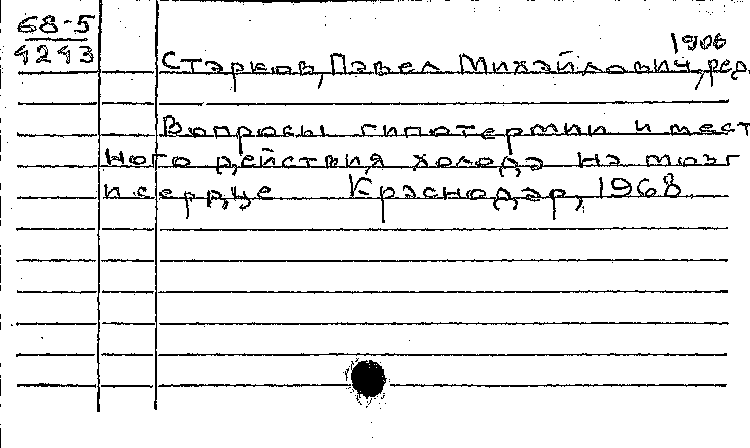 68-5
4243
1906
Старков, Павел Михайлович, ред.
Вопросы гипотермии и мест
ного действия холода на мозг
и сердце Краснодар, 1968